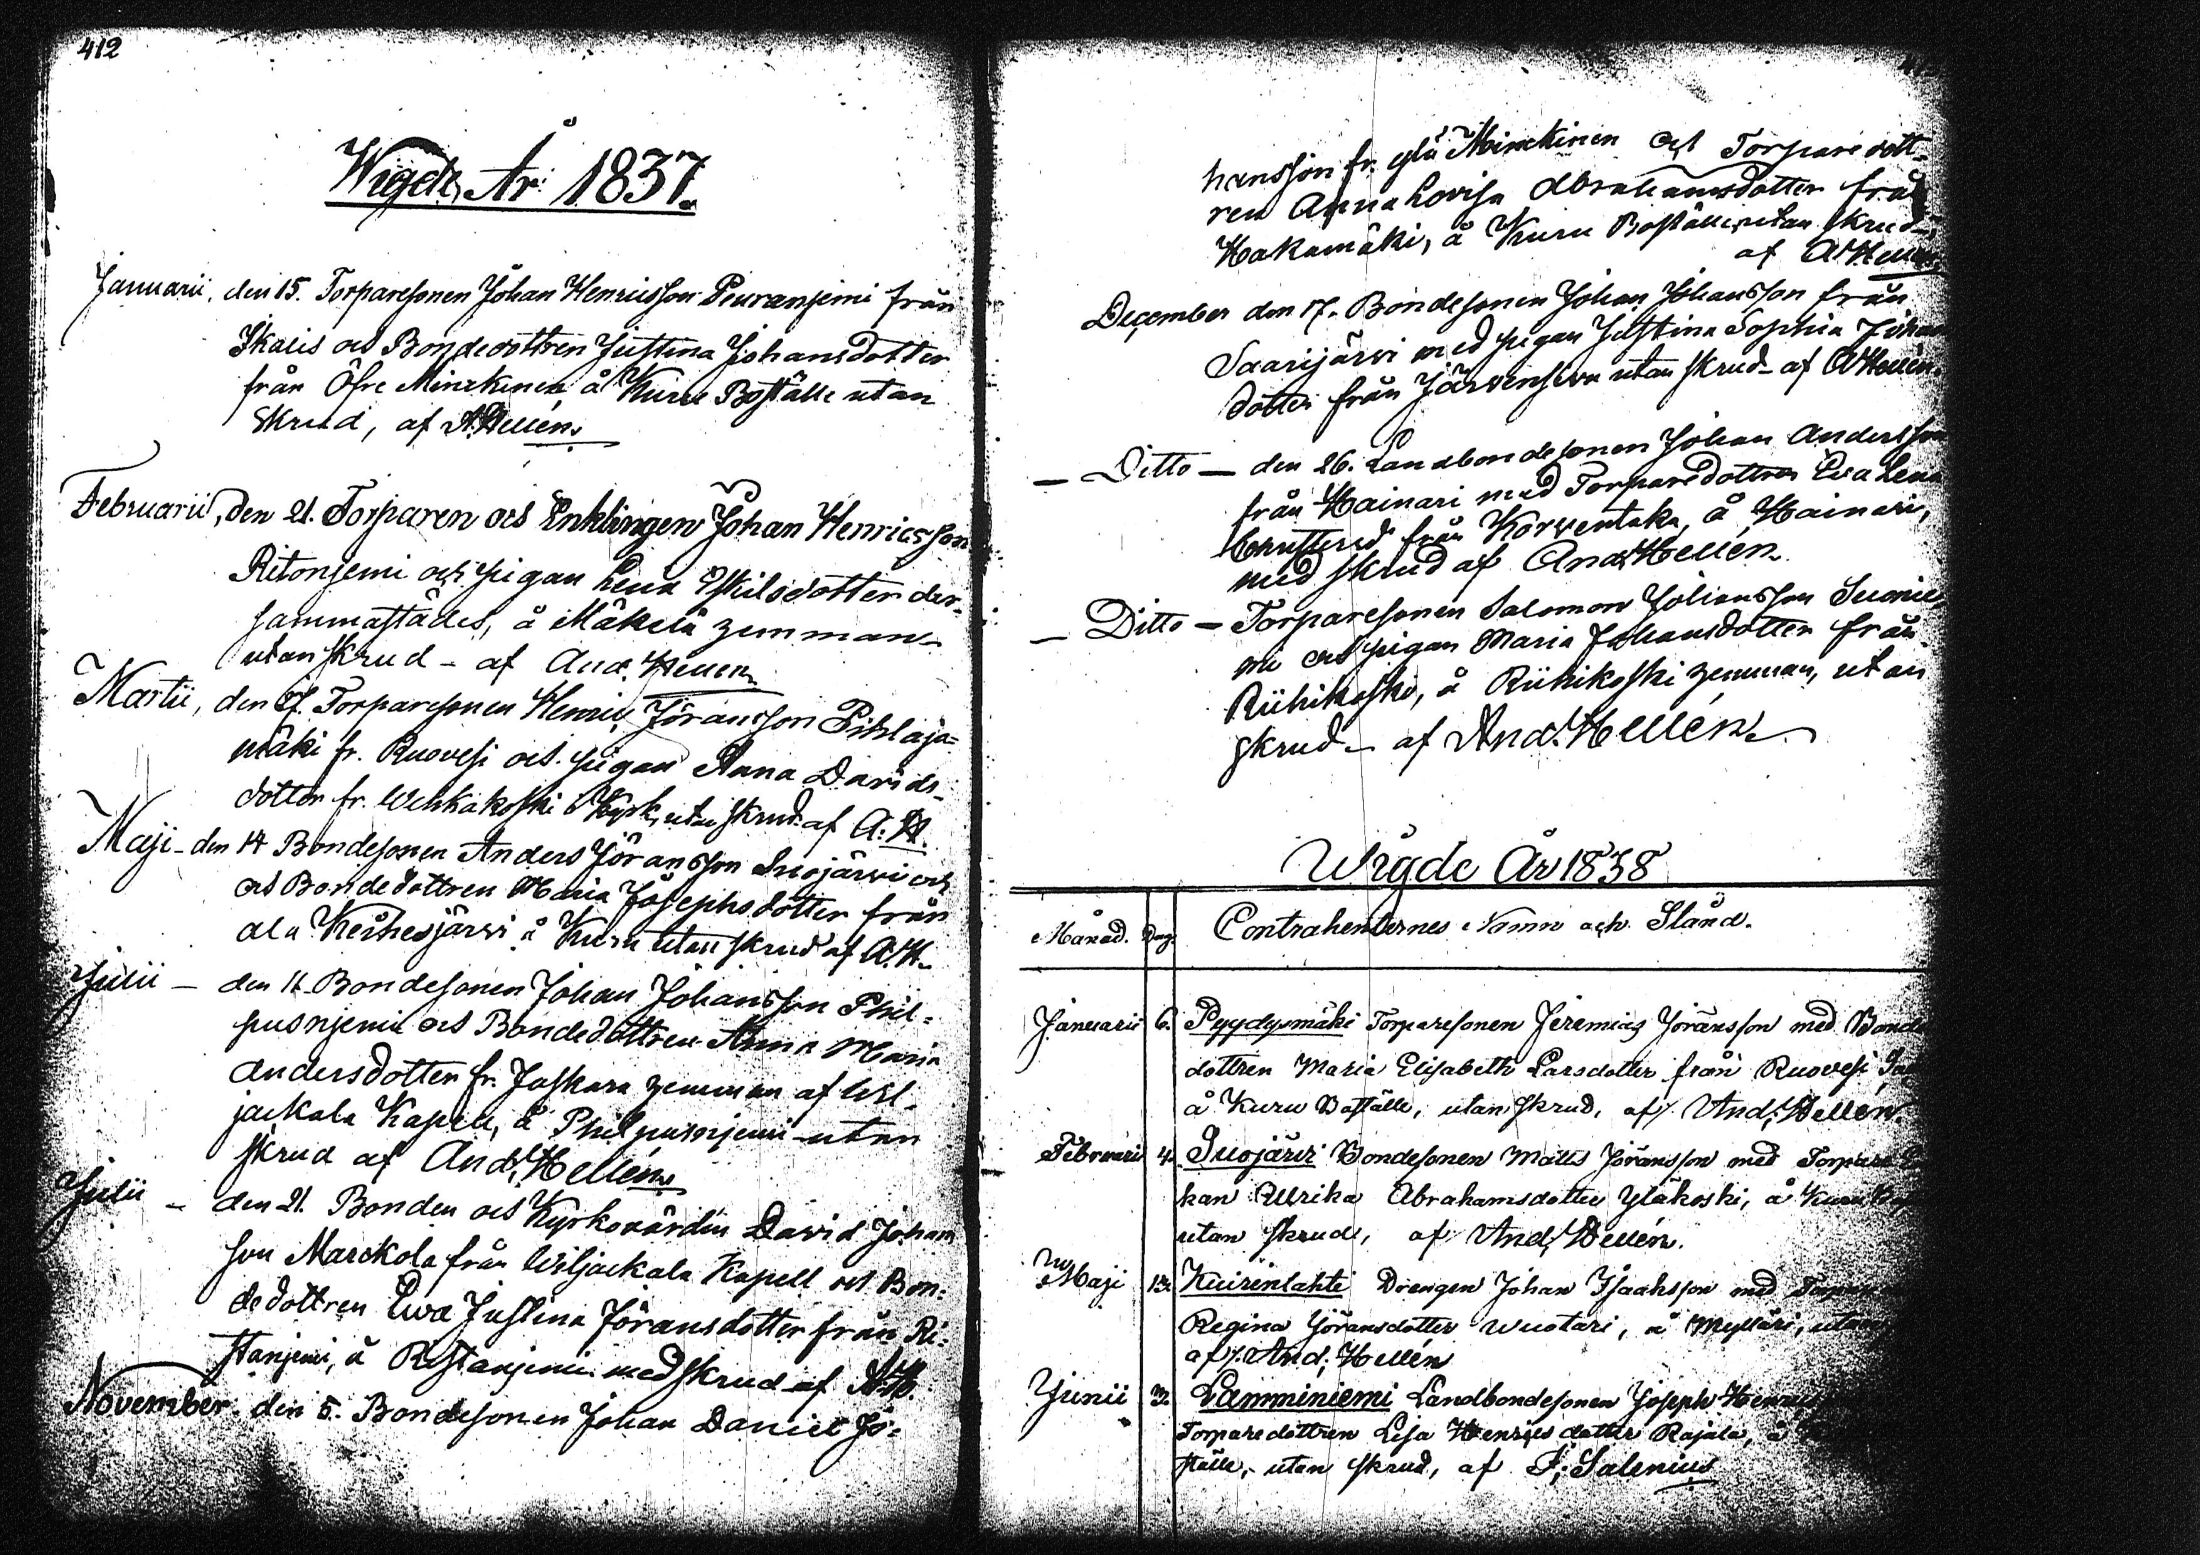 412
Wigde År 1837.
Januarii, den 15. Torparesonen Johan Henricsson Peuranjemi från
Ikalis och Bondedottren Justina Johansdotter
från Öfre Minckinen å Kuru Boställe utan
Skrud, af A. Hellén.
Februarii, den 21. Torparen och Enklingen Johan Henricsson
Ritonjemi och pigan Lena Eskilsdotter der-
sammastädes, å Mäkelä hemman
utan skrud - af And. Hellén
Martii, den 27. Torparesonen Henric Jöransson Pihlaja=
mäki fr. Ruovesi och pigan Anna Davids-
dotter fr. Wehkakoski i Kyrk, utan skrud. af A. H.
Maji - den 14 Bondesonen Anders Jöransson Suojärvi och
och Bondedottren Maria Josephsdotter från
ala Keihesjärvi å Kuru utan skrud af A. H.
Julii - den 11. Bondesonen Johan Johansson Phil=
pusnjemi och Bondedottren Anna Maria
Andersdotter fr. Jaskara hemman af Wil-
jackala Kapell, å Philpusnjemi utan
skrud af And. Hellén.
Julii - den 21. Bonden och Kyrkovärden David Johans
son Marckola från Wiljackala Kapell och Bon=
dedottren Ewa Justina Jöransdotter från Ri=
stanjemi, å Ristanjemi med skrud af A. H.
November den 5. Bondesonen Johan Daniel Jo=
hansson fr. ylä Minckinen och Torparedott-
ren Anna Lovisa Abrahamsdotter från
Hakamäki, å Kuru Boställe, utan skrud-
af A Hellén.
December den 17. Bondesonen Johan Johansson från
Saarijärvi med pigan Justina Sophia Johan
dotter från Järvensivu utan skrud - af A Hellén.
- Ditto - den 26. Landbondesonen Johan Andersson
från Hainari med Torparedottren Eva Lena
från Korventaka, å Hainari,
med skrud af And. Hellén.
- Ditto - Torparesonen Salomon Johansson Suonie
mi och pigan Maria Johansdotter från
Riihikoski, å Riihikoski hemman, utan
skrud - af And. Hellén.
Wigde År 1838
Månad. Dag. Contrahenternes Namn och Stånd.
Januarii 6. Pyydysmäki Torparesonen Jeremias Jöransson med Bonde
dottren Maria Elisabeth Larsdotter från Ruovesi
å Kuru Boställe, utan skrud, af/. And. Hellén.
Februarii 4. Suojärvi Bondesonen Matts Jöransson med Torpare
kan Ulrika Abrahamsdotter Yläkoski, å Kuru
utan skrud, af And. Hellén.
Maji 13. Kuirenlahti Drengen Johan Isaaksson med
Regina Jöransdotter Wuotari, å Myllari, utan
af/. And. Hellén
Junii 3. Lamminiemi Landbondesonen Joseph
Torparedottren Lisa Henricsdotter Rajala, å
ställe, utan skrud, af F. Salenius